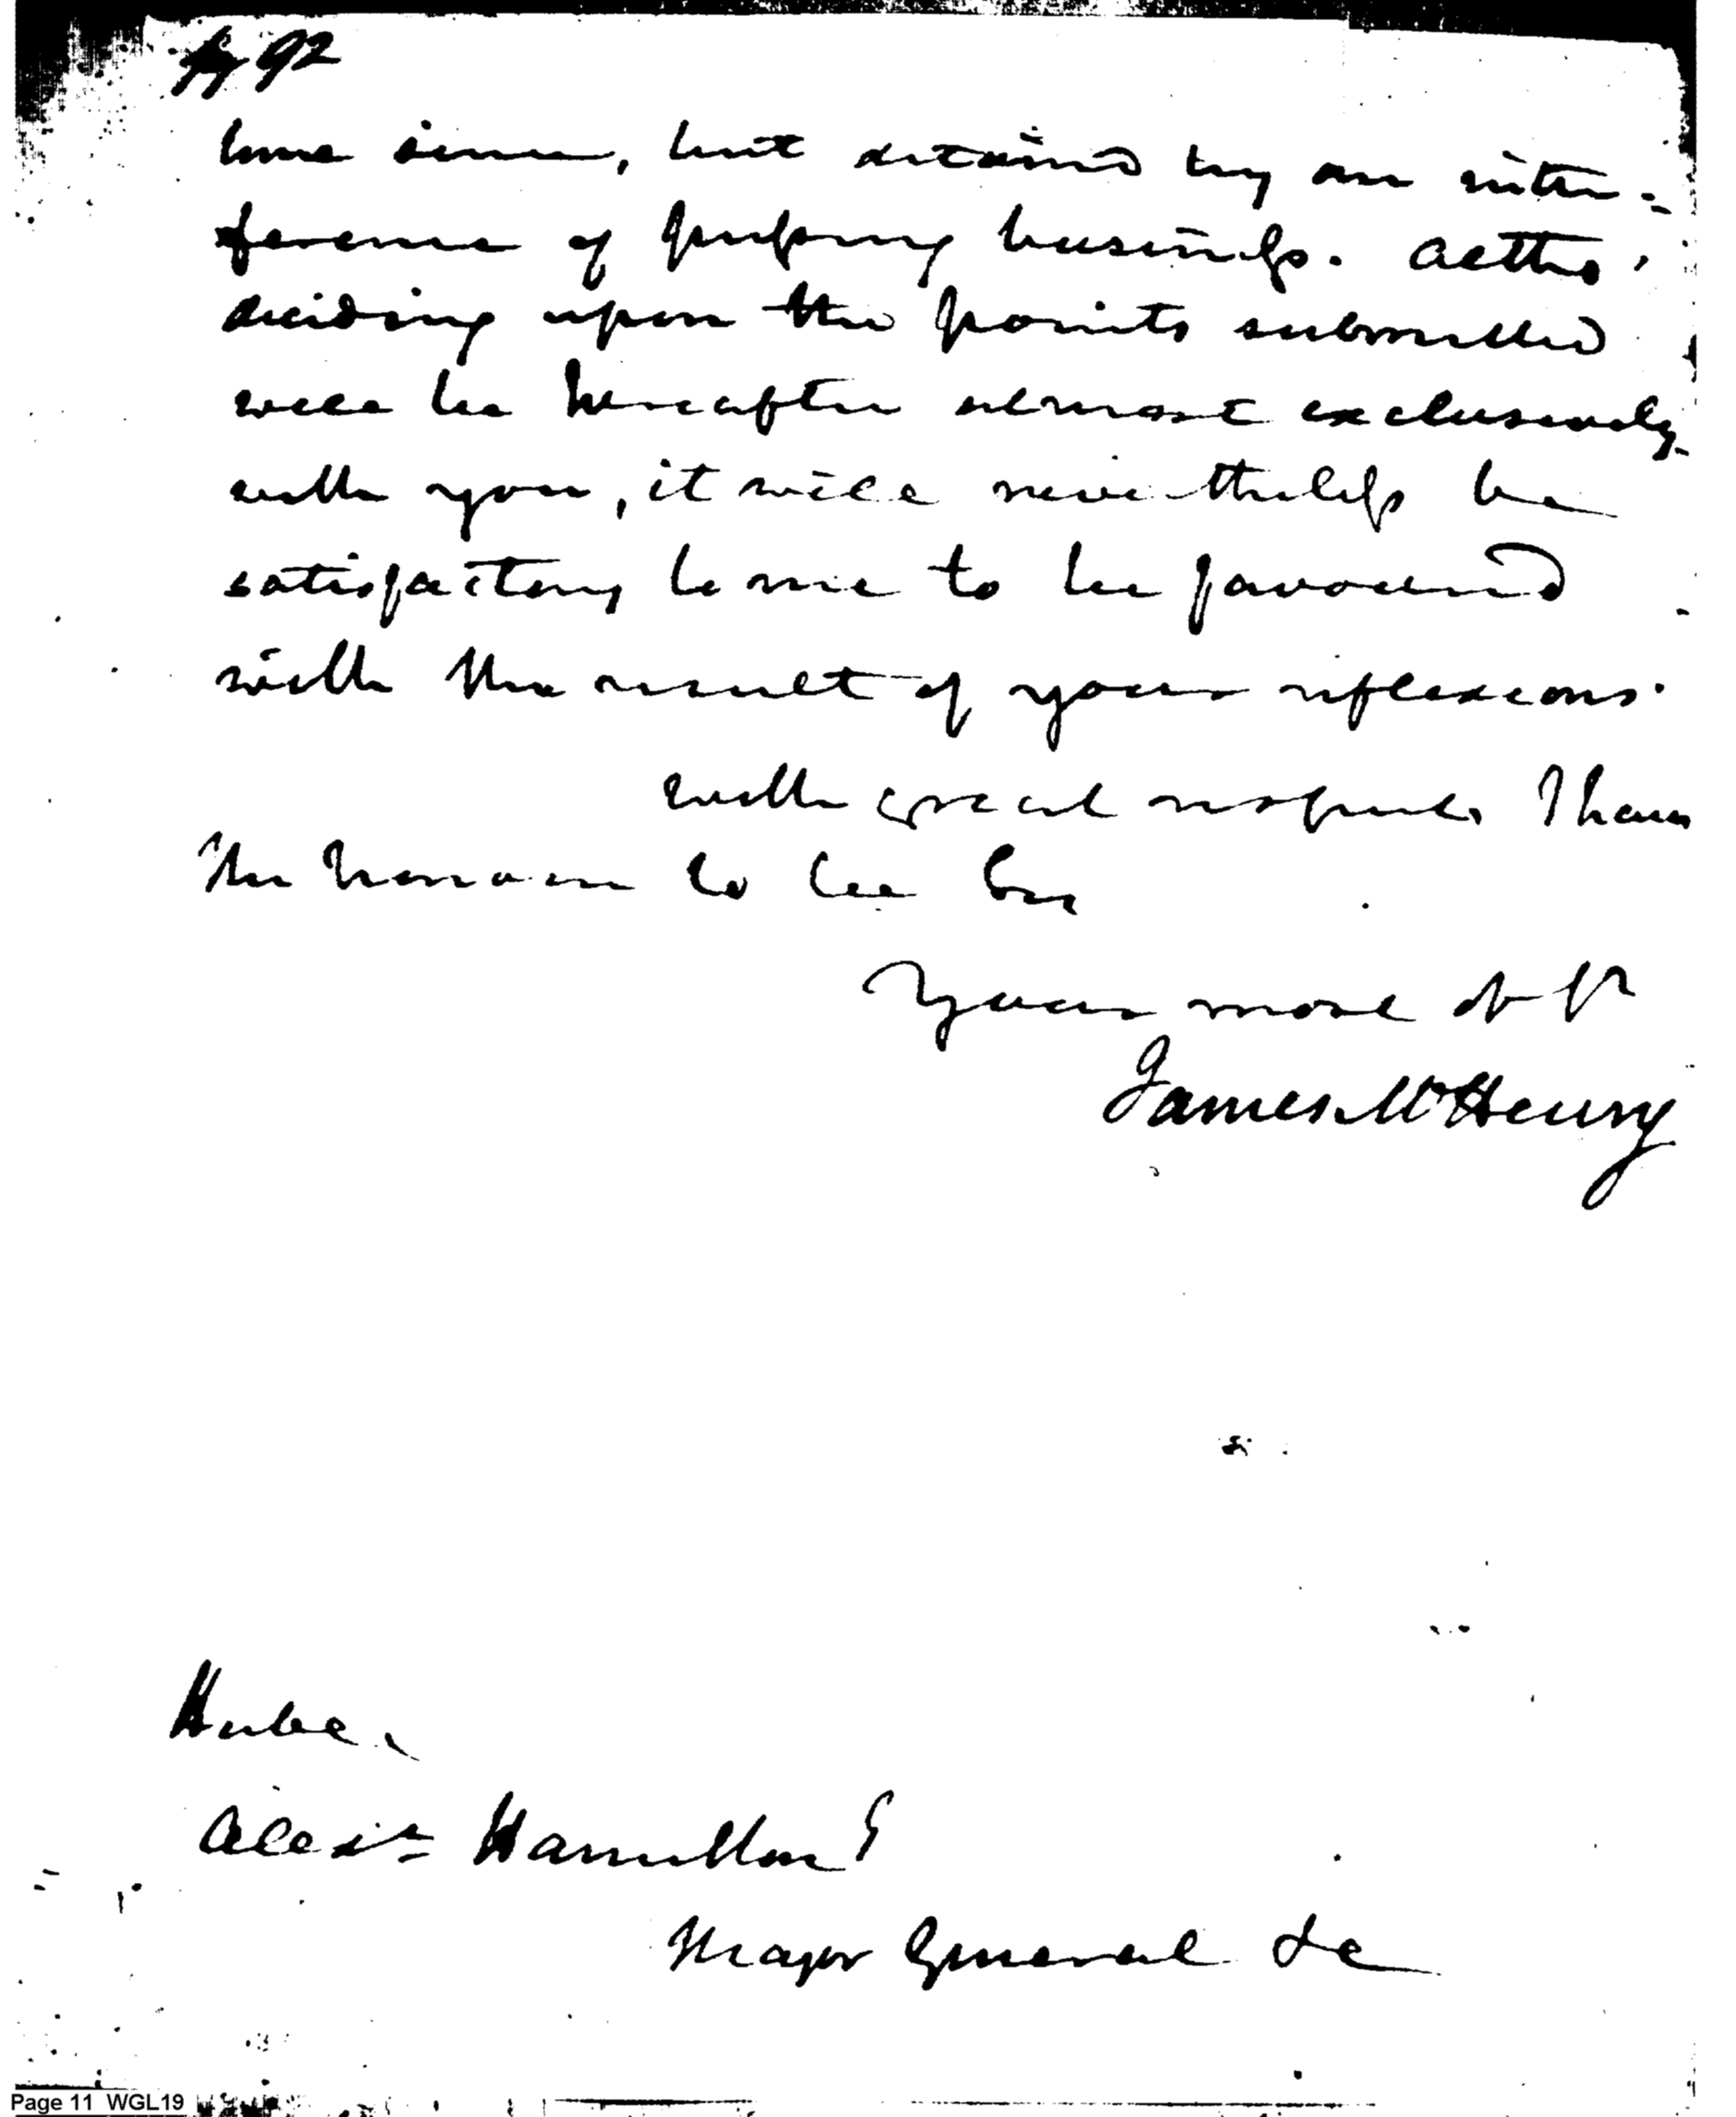 92
time since, but detained by an inter=
ference of pressing business. Altho'
deciding upon the points submitted
will be hereafter almost exclusively
with you, it will nevertheless be
satisfactory to me to be favoured
with the result of your reflexions.
with great respect, I have
the honour to be Sir
Your most Ob St
James McHenry
Alexr Hamilton
Major General &c
Page 11 WGL19